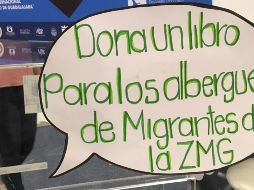 NACIONAL
DE GUADALAJARA
Dona un libro
Para los albergue
de Migrantes d
la ZMG